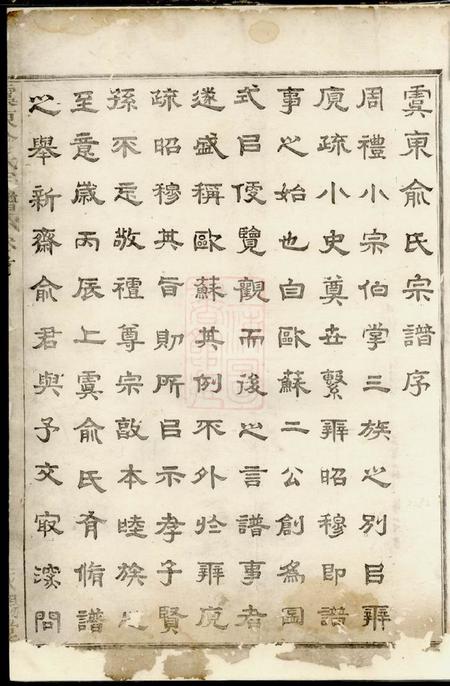 虞東俞氏宗譜序
周禮小宗伯掌三族之別㠯辨
庻疏小史奠世繫辨昭穆即譜
事之始也自歐蘇二公創為圖
式㠯便覽觀而後之言譜事者
遂盛稱歐蘇其例不外於辨庻
疏昭穆其旨則所㠯示孝子賢
孫不忘敬禮尊宗敦本睦族之
至意歲丙辰上虞俞氏有脩譜
之舉新齋俞君與予交㝡深問